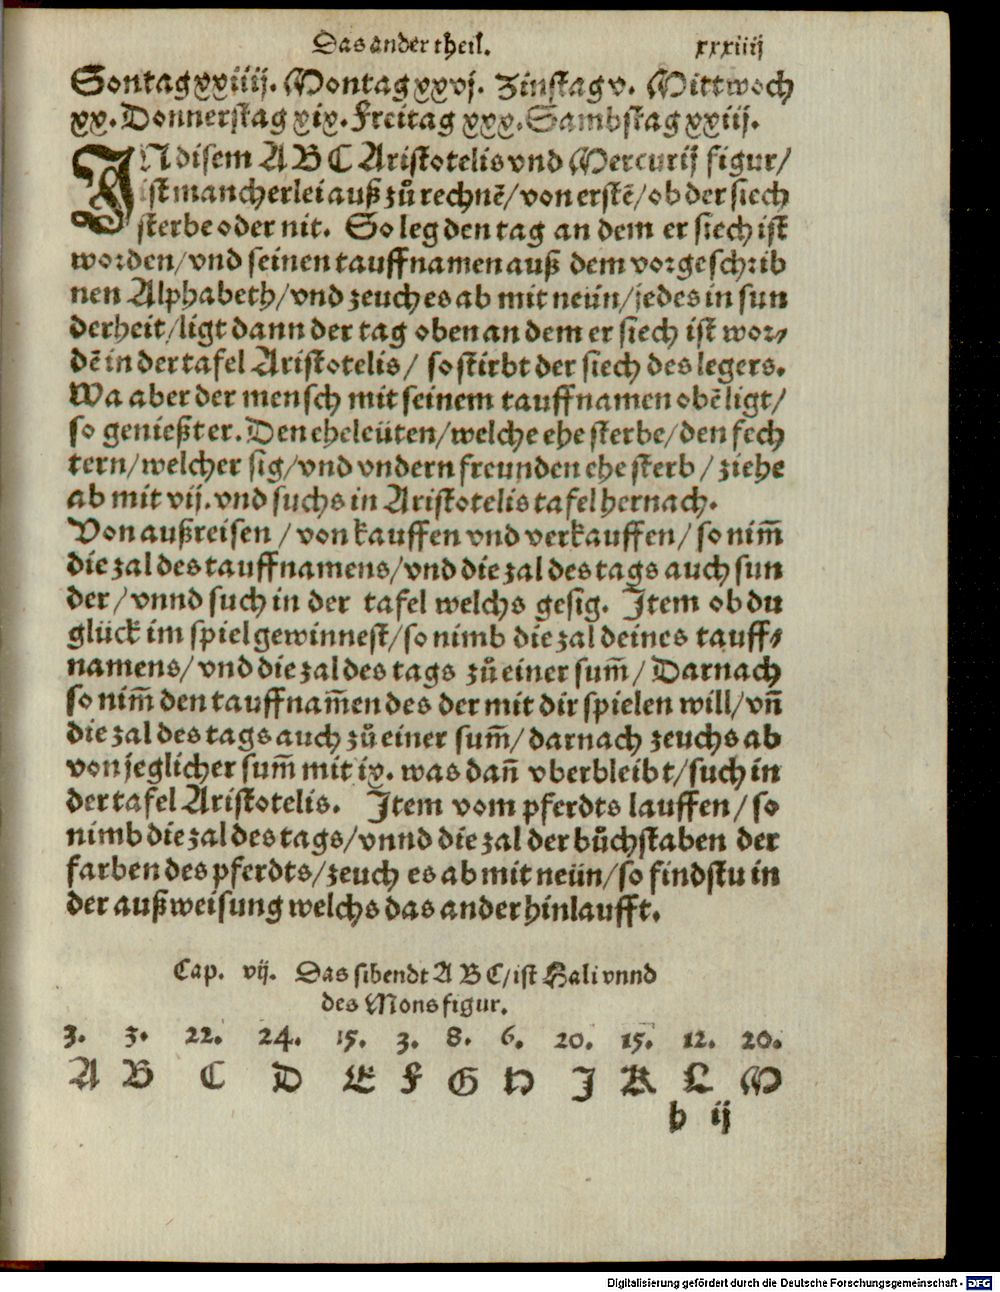 Das ander theil. xxxiiij
Sontag xxiiij. Montag xxvj. Zinstag v. Mittwoch
xx. Donnerstag xix. Freitag xxx. Sambstag xxiij.
IN disem A B C Aristotelis vnd Mercurij figur/
ist mancherlei auß zů rechnẽ/ von erstẽ/ ob der siech
sterbe oder nit. So leg den tag an dem er siech ist
worden/ vnd seinen tauffnamen auß dem vorgeschrib
nen Alphabeth/ vnd zeuch es ab mit neün/ jedes in sun
derheit/ ligt dann der tag oben an dem er siech ist wor⸗
dẽ in der tafel Aristotelis/ so stirbt der siech des legers.
Wa aber der mensch mit seinem tauffnamen obẽ ligt/
so genießt er. Den eheleüten/ welche ehe sterbe/ den fech
tern/ welcher sig/ vnd vndern freunden ehe sterb/ ziehe
ab mit vij. vnd suchs in Aristotelis tafel hernach.
Von außreisen/ von kauffen vnd verkauffen/ so nim̃
die zal des tauffnamens/ vnd die zal des tags auch sun
der/ vnnd such in der tafel welchs gesig. Item ob du
glück im spiel gewinnest/ so nimb die zal deines tauff⸗
namens/ vnd die zal des tags zů einer sum̃/ Darnach
so nim̃ den tauffnam̃en des der mit dir spielen will/ vñ
die zal des tags auch zů einer sum̃/ darnach zeuchs ab
von jeglicher sum̃ mit ix. was dañ vberbleibt/ such in
der tafel Aristotelis. Item vom pferdts lauffen/ so
nimb die zal des tags/ vnnd die zal der bůchstaben der
farben des pferdts/ zeuch es ab mit neün/ so findstu in
der außweisung welchs das ander hinlaufft.
Cap. vij. Das sibendt A B C/ ist Hali vnnd
des Mons figur.
3. 3. 22. 24. 15. 3. 8. 6. 20. 15. 12. 20.
A B C D E F G H I K L M
h ij
Digitalisierung gefördert durch die Deutsche Forschungsgemeinschaft - DFG